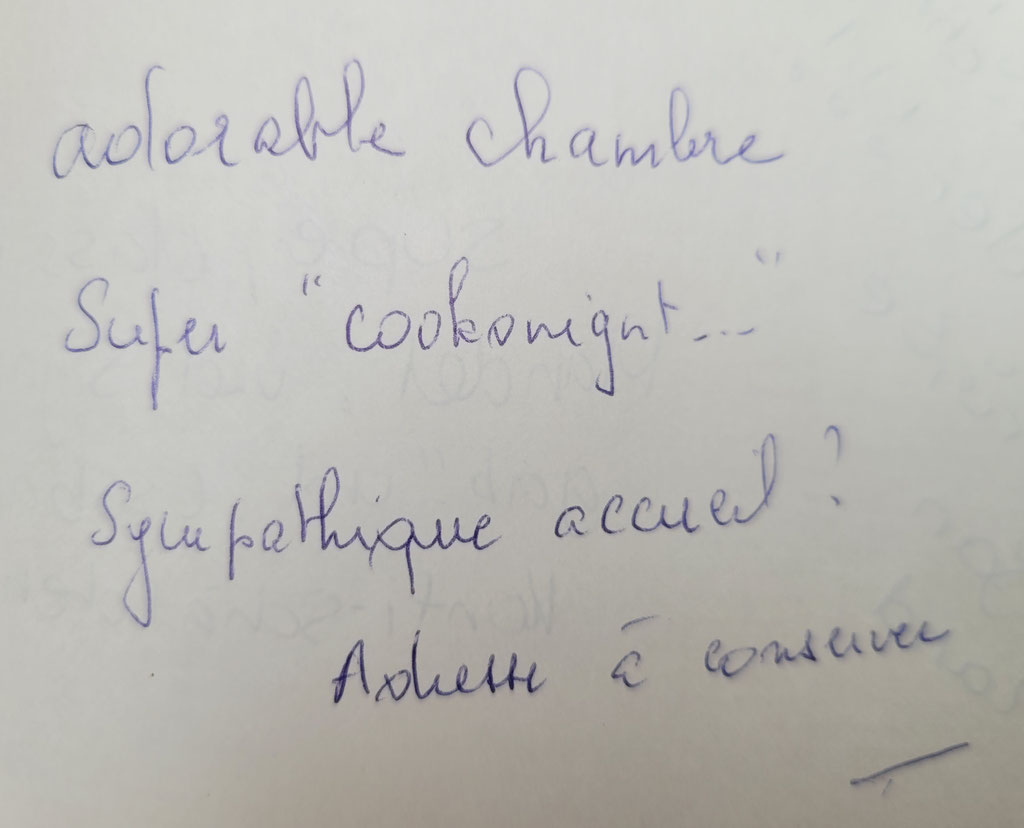 adorable chambre
Super " cookonignt... "
Sympathique accueil ?
Adresse à conserver